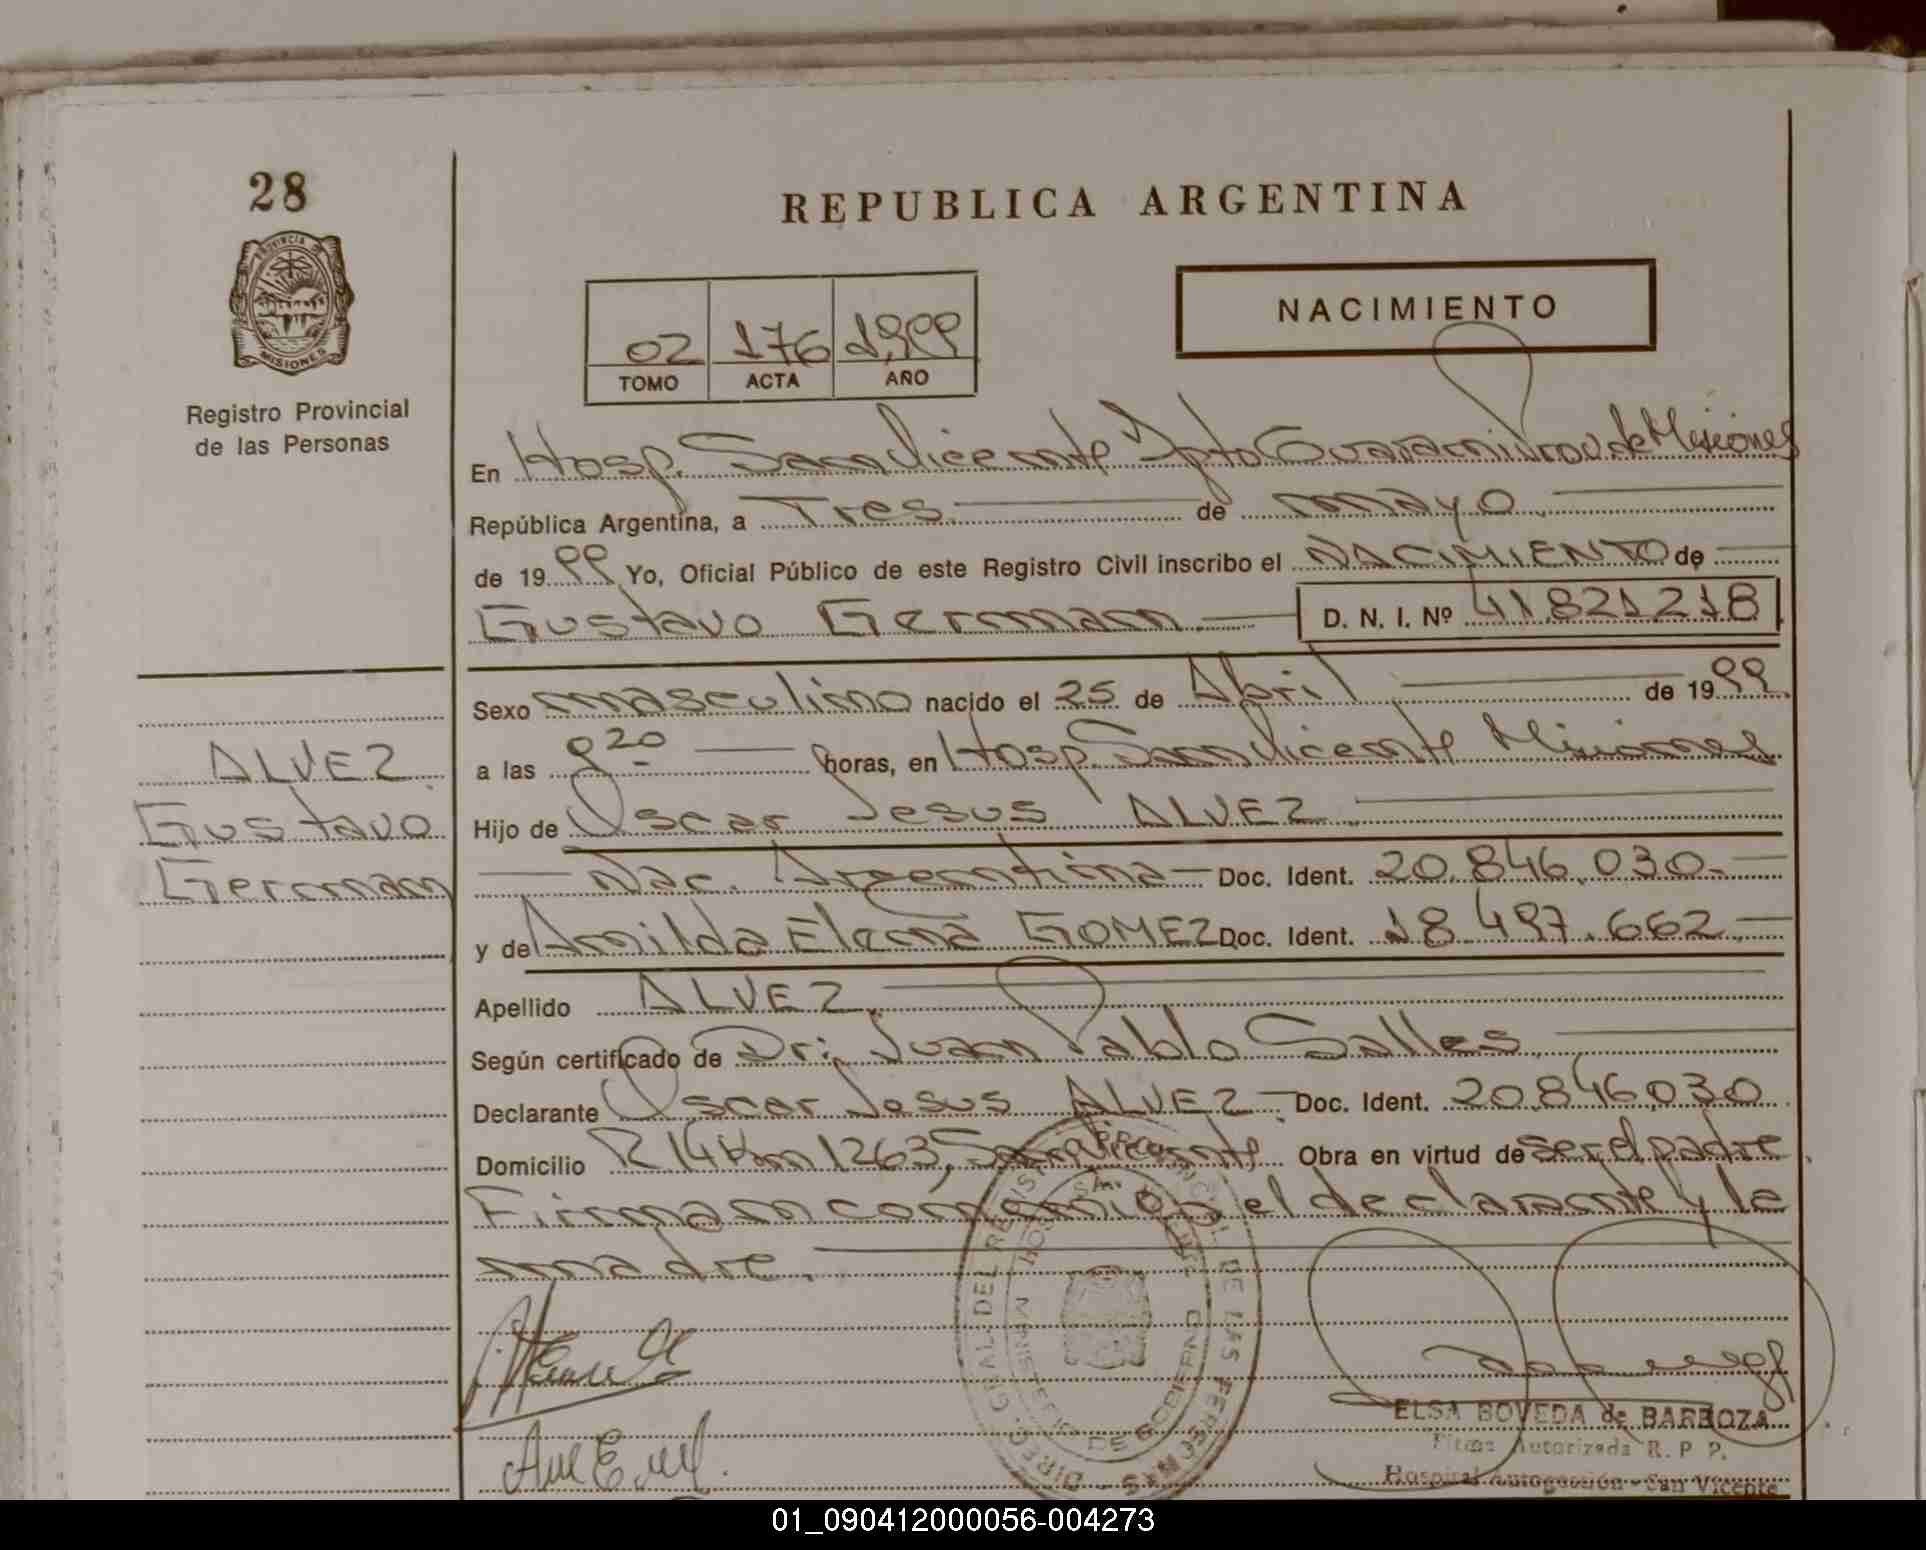 28
REPUBLICA ARGENTINA
PROVINCIA DE MISIONES
Registro Provincial
de las Personas
02 176 1,999
TOMO ACTA AÑO
NACIMIENTO
En Hosp. San Vicente Dpto Guarani Prov. de Misiones
República Argentina, a Tres de mayo
de 1999 Yo, Oficial Público de este Registro Civil inscribo el NACIMIENTO de
Gustavo German D. N. I. Nº 41.821.218
Sexo masculino nacido el 25 de Abril de 1999
a las 9 20 horas, en Hosp. San Vicente Misiones
Hijo de Oscar Jesus ALVEZ
Nac. Argentina Doc. Ident. 20.846.030.
y de Amilda Elena GOMEZ Doc. Ident. 18.497.662.
Apellido ALVEZ.
Según certificado de Dr: Juan Pablo Salles
Declarante Oscar Jesus ALVEZ Doc. Ident. 20.846.030
Domicilio R 14 Km 1263, San Vicente. Obra en virtud de ser el padre.
Firman conmigo el declarante y la
madre.
ALVEZ
Gustavo
German
DIREC. GRAL. DEL REGISTRO PROVINCIAL DE LAS PERSONAS
MINISTERIO DE GOBIERNO
ELSA BOVEDA de BARBOZA
Firma Autorizada R. P. P.
Hospital Autogestión - San Vicente
01_090412000056-004273